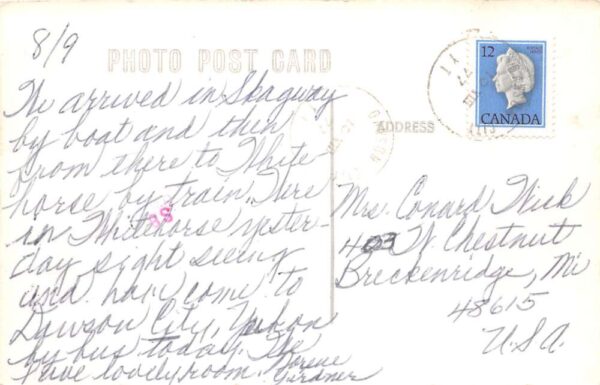 8/9
PHOTO POST CARD
We arrived in Skagway
by boat and then
from there to White-
horse by train. Were
in Whitehorse yester-
day sight seeing
and have come to
Dawson City, Yukon
by bus today. We
have lovely room.
Lorene
Gardner
38
ADDRESS
12
CANADA
Mrs. Conard Fisk
403 W. Chestnut
Breckenridge, Mi
48615
U.S.A.